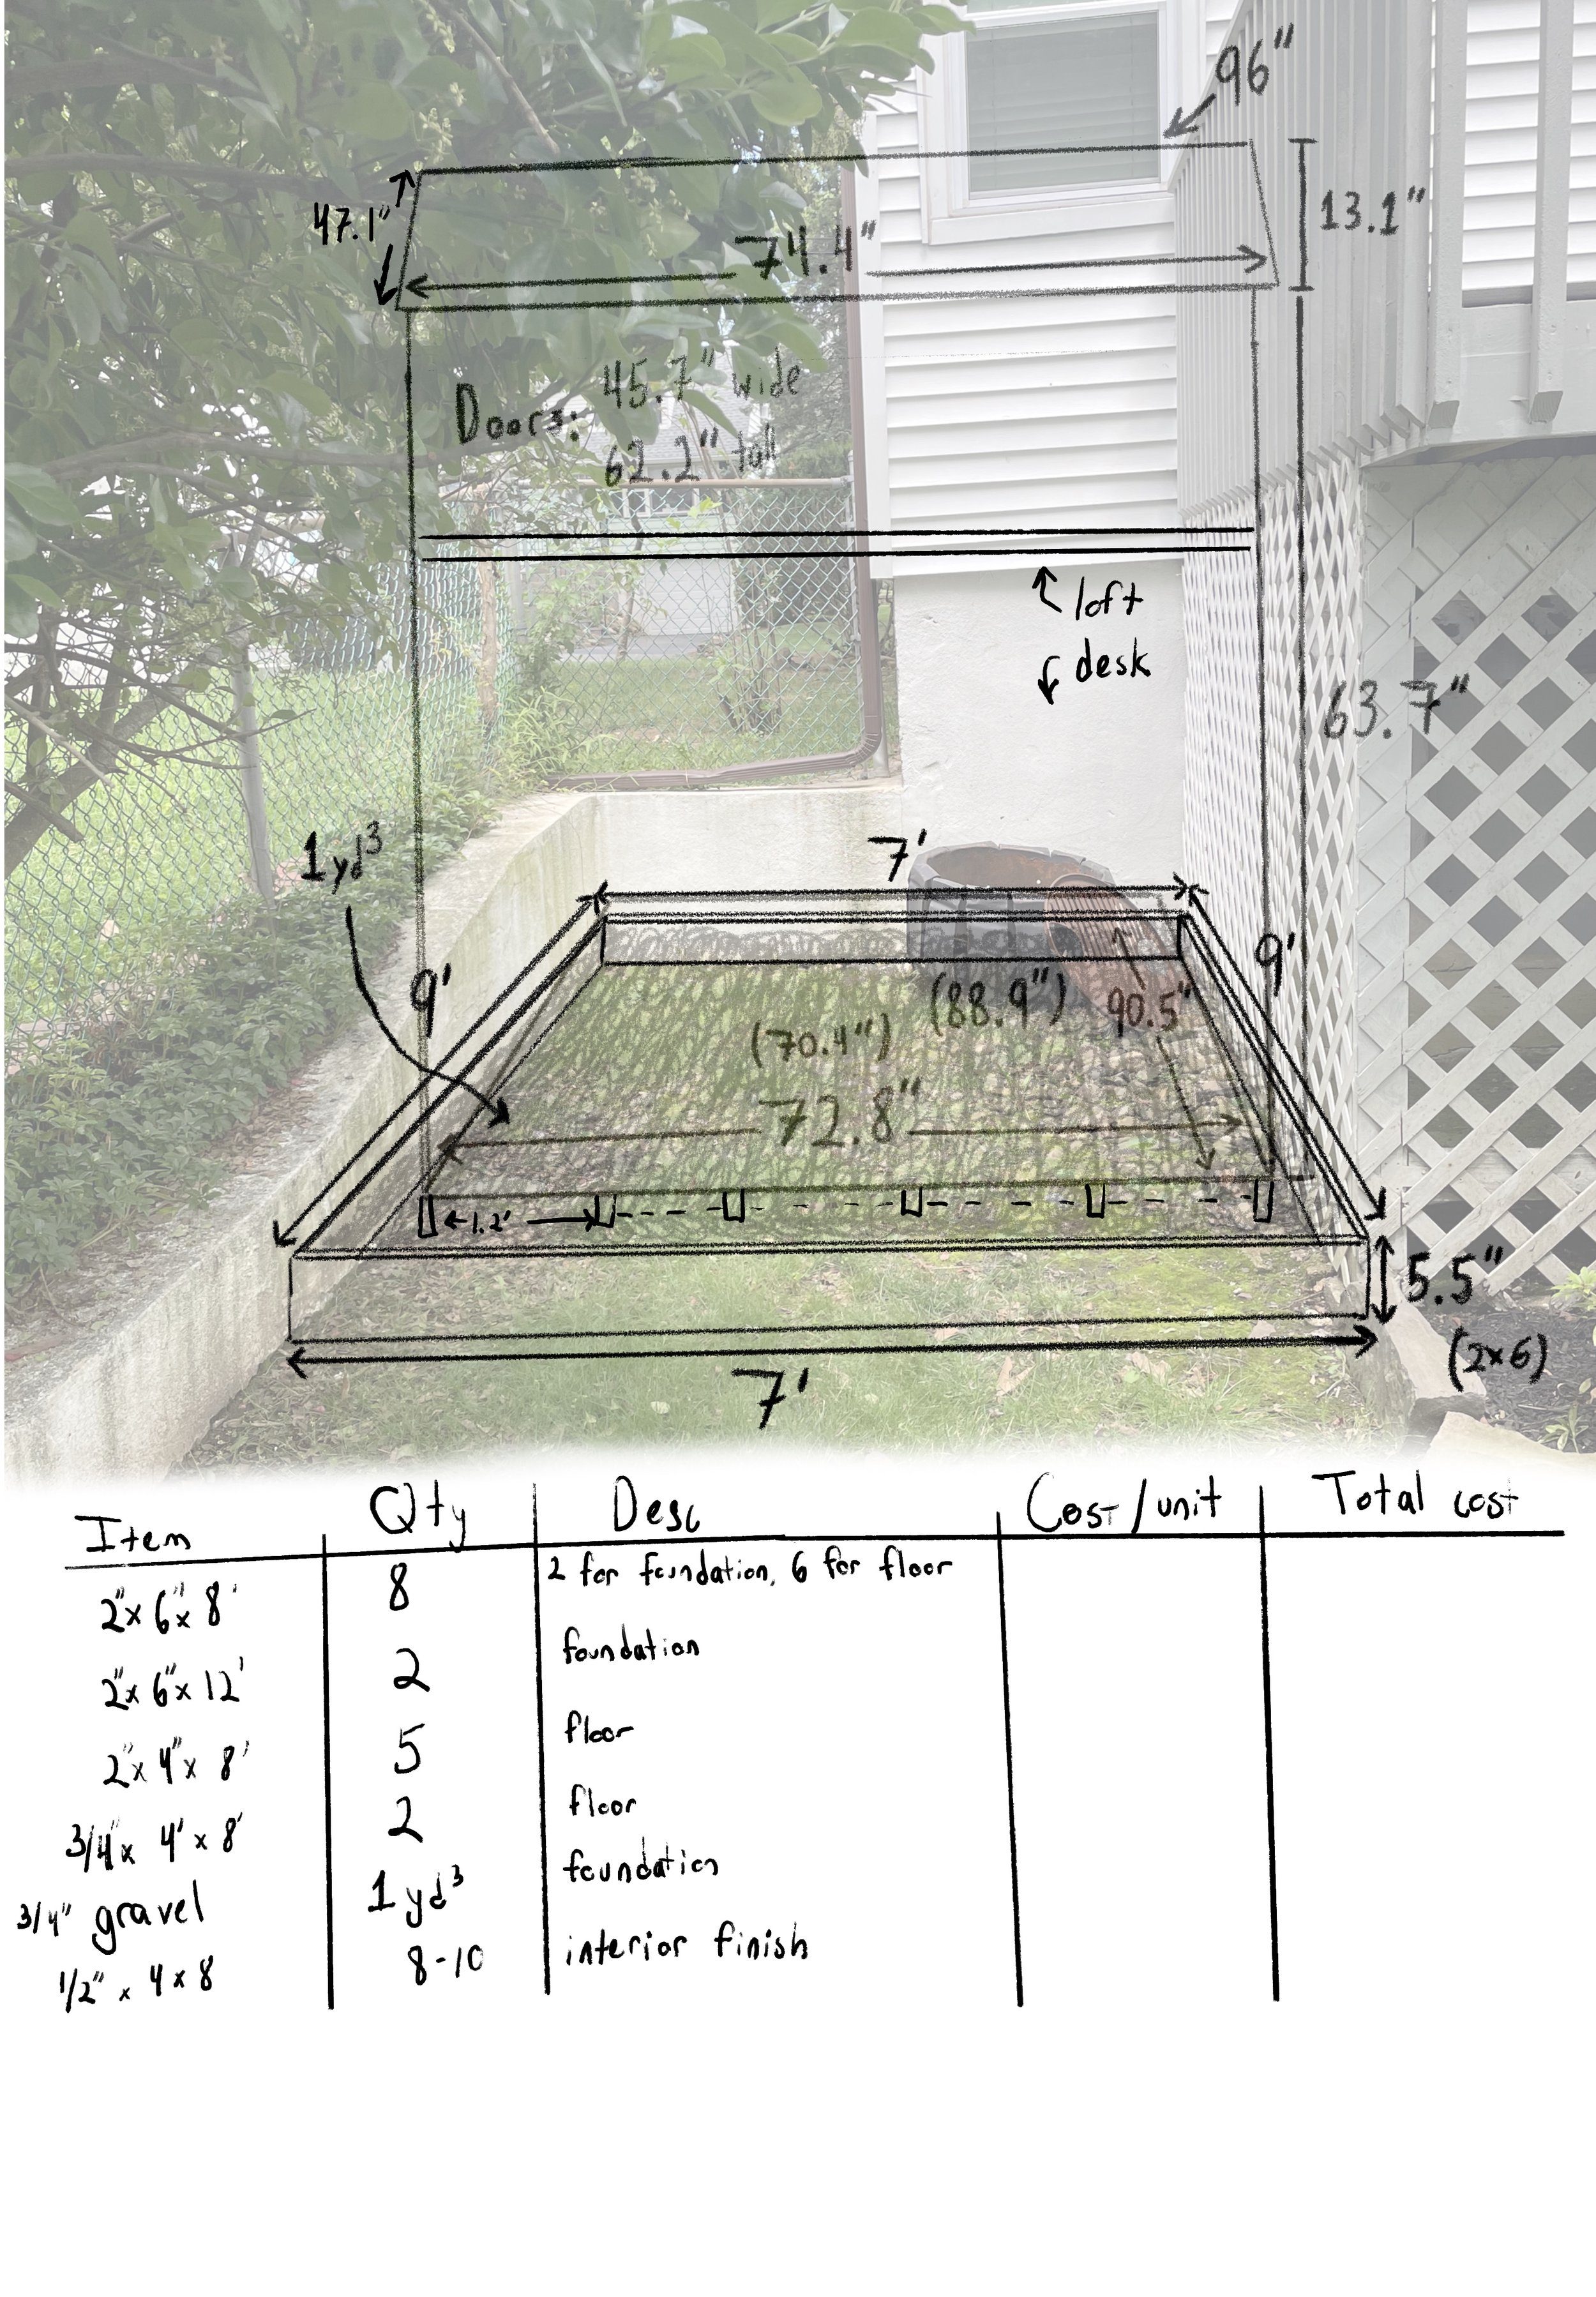 96"
47.1"
13.1"
74.4"
Doors: 45.7" wide
62.2" tall
loft
desk
63.7"
1 yd³
7'
9'
9'
(88.9")
90.5"
(70.4")
72.8"
1.2'
5.5"
(2x6)
7'
Item Qty Desc Cost/unit Total cost
2"x 6"x 8' 8 2 for foundation, 6 for floor
2"x 6"x 12' 2 foundation
2"x 4"x 8' 5 floor
3/4"x 4'x 8' 2 floor
3/4" gravel 1 yd³ foundation
1/2" x 4 x 8 8-10 interior finish